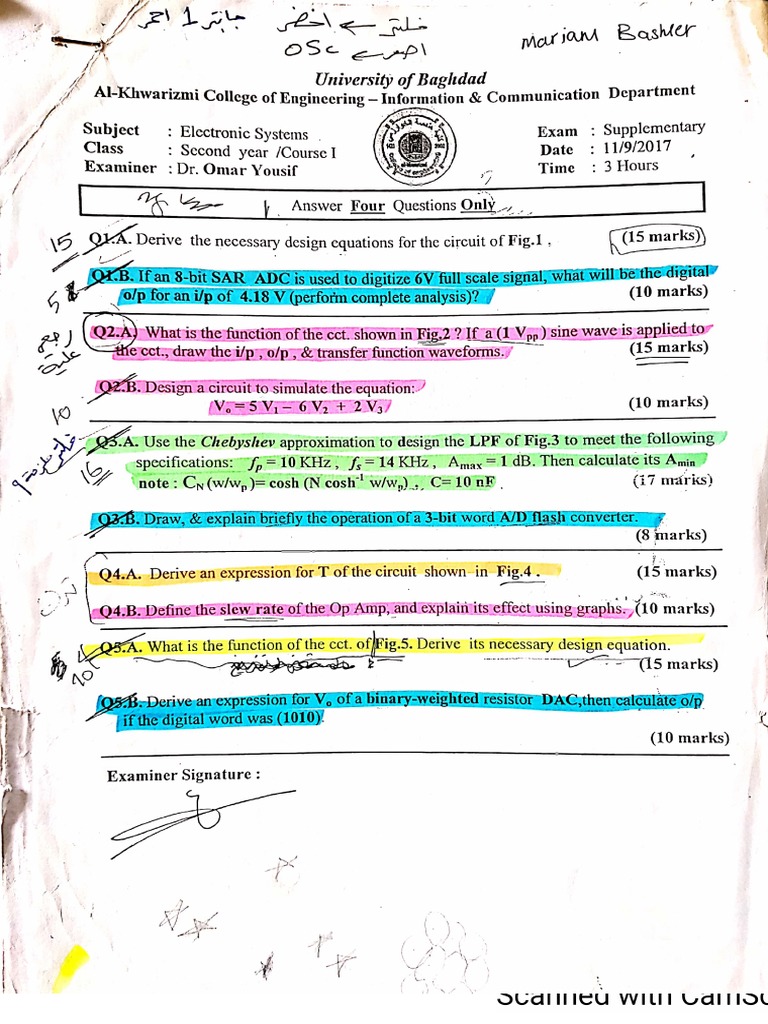 فلتر → اخضر جابتر 1 احمر
اصفر → OSC
Mariam Bashier
University of Baghdad
Al-Khwarizmi College of Engineering – Information & Communication Department
Subject : Electronic Systems
Class : Second year /Course I
Examiner : Dr. Omar Yousif
Exam : Supplementary
Date : 11/9/2017
Time : 3 Hours
Answer Four Questions Only
15 Q1.A. Derive the necessary design equations for the circuit of Fig.1 . (15 marks)
5 Q1.B. If an 8-bit SAR ADC is used to digitize 6V full scale signal, what will be the digital
o/p for an i/p of 4.18 V (perform complete analysis)? (10 marks)
Q2.A. What is the function of the cct. shown in Fig.2 ? If a (1 Vpp) sine wave is applied to
the cct., draw the i/p , o/p , & transfer function waveforms. (15 marks)
Q2.B. Design a circuit to simulate the equation: (10 marks)
Vo = 5 V1 – 6 V2 + 2 V3
10
Q3.A. Use the Chebyshev approximation to design the LPF of Fig.3 to meet the following
16 specifications: fp = 10 KHz , fs = 14 KHz , Amax = 1 dB. Then calculate its Amin
note : CN (w/wp )= cosh (N cosh-1 w/wp) ., C= 10 nF (17 marks)
Q3.B. Draw, & explain briefly the operation of a 3-bit word A/D flash converter.
(8 marks)
Q4.A. Derive an expression for T of the circuit shown in Fig.4 . (15 marks)
Q4.B. Define the slew rate of the Op Amp, and explain its effect using graphs. (10 marks)
Q5.A. What is the function of the cct. of Fig.5. Derive its necessary design equation.
10 (15 marks)
Q5.B. Derive an expression for Vo of a binary-weighted resistor DAC,then calculate o/p
if the digital word was (1010)
(10 marks)
Examiner Signature :
Scanned with CamSc